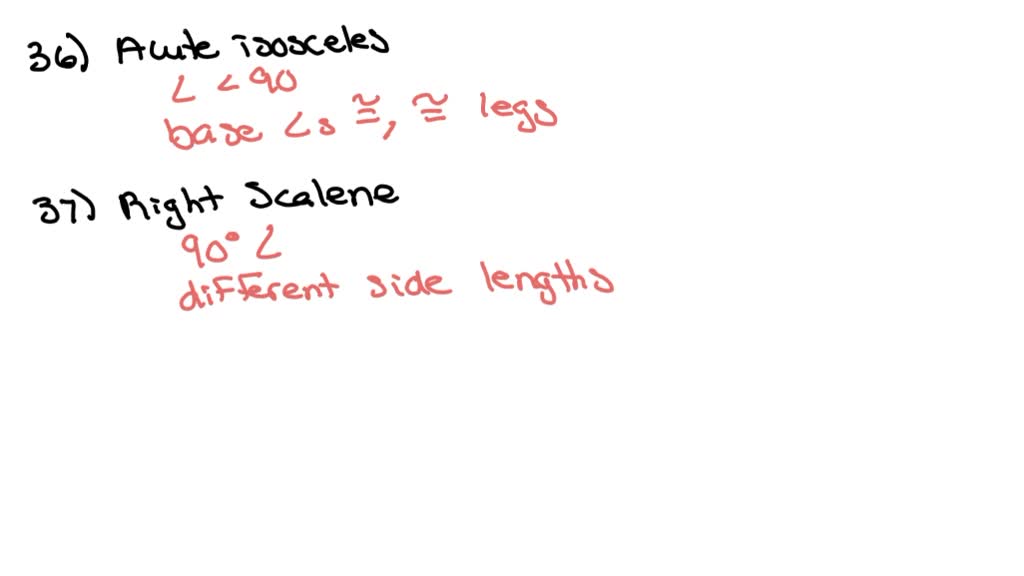 36) Acute isosceles
∠ < 90
base ∠s ≅, ≅ legs
37) Right Scalene
90° ∠
different side lengths